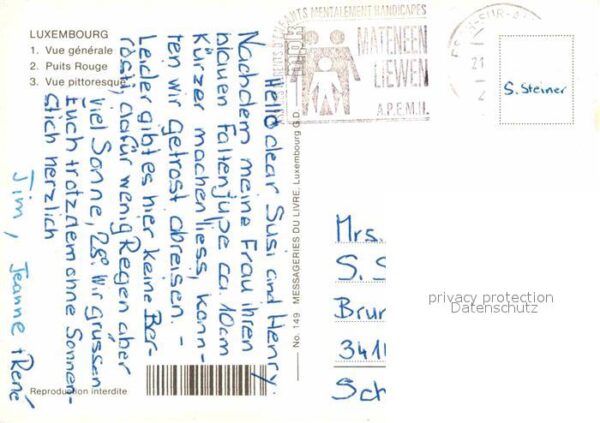 LUXEMBOURG
1. Vue générale
2. Puits Rouge
3. Vue pittoresque
Hello dear Susi and Henry.
Nachdem meine Frau ihren
blauen Faltenjupe ca. 10cm
kürzer machen liess, konn-
ten wir getrost abreisen. –
Leider gibt es hier keine Ber-
rösti, dafür wenig Regen aber
viel Sonne, 28°. Wir grüssen
Euch trotzdem ohne Sonnen-
stich herzlich
Jim, Jeanne + René
Reproduction interdite
No. 149 MESSAGERIES DU LIVRE, Luxembourg G.D.
MENTALEMENT HANDICAPES
MATENEEN
LIEWEN
A.P.E.M.H.
-SUR-A
21
S. Steiner
Mrs.
S. S
Brun
341
Sch
privacy protection
Datenschutz